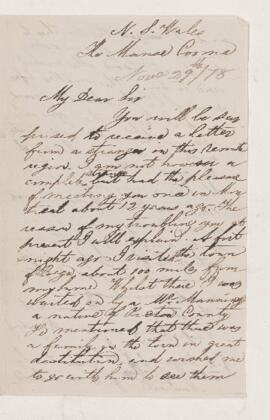 N. S. Wales
The Manse Cooma
Nov 29th/78
My Dear Sir
You will be sur
prised to receive a letter
from a stranger in this remote
region. I am not however a
complete had the pleasure
of meeting you once in Mon
treal about 12 years ago. The
reason of my troubling you at
present I will explain. A fort
night ago I visited the town
of Bega, about 100 miles from
my home. Whilst there I was
waited on by a Mr. Manning
a native of County
He mentioned that there was
a family in the town in great
destitution, and wished me
to go with him to see them